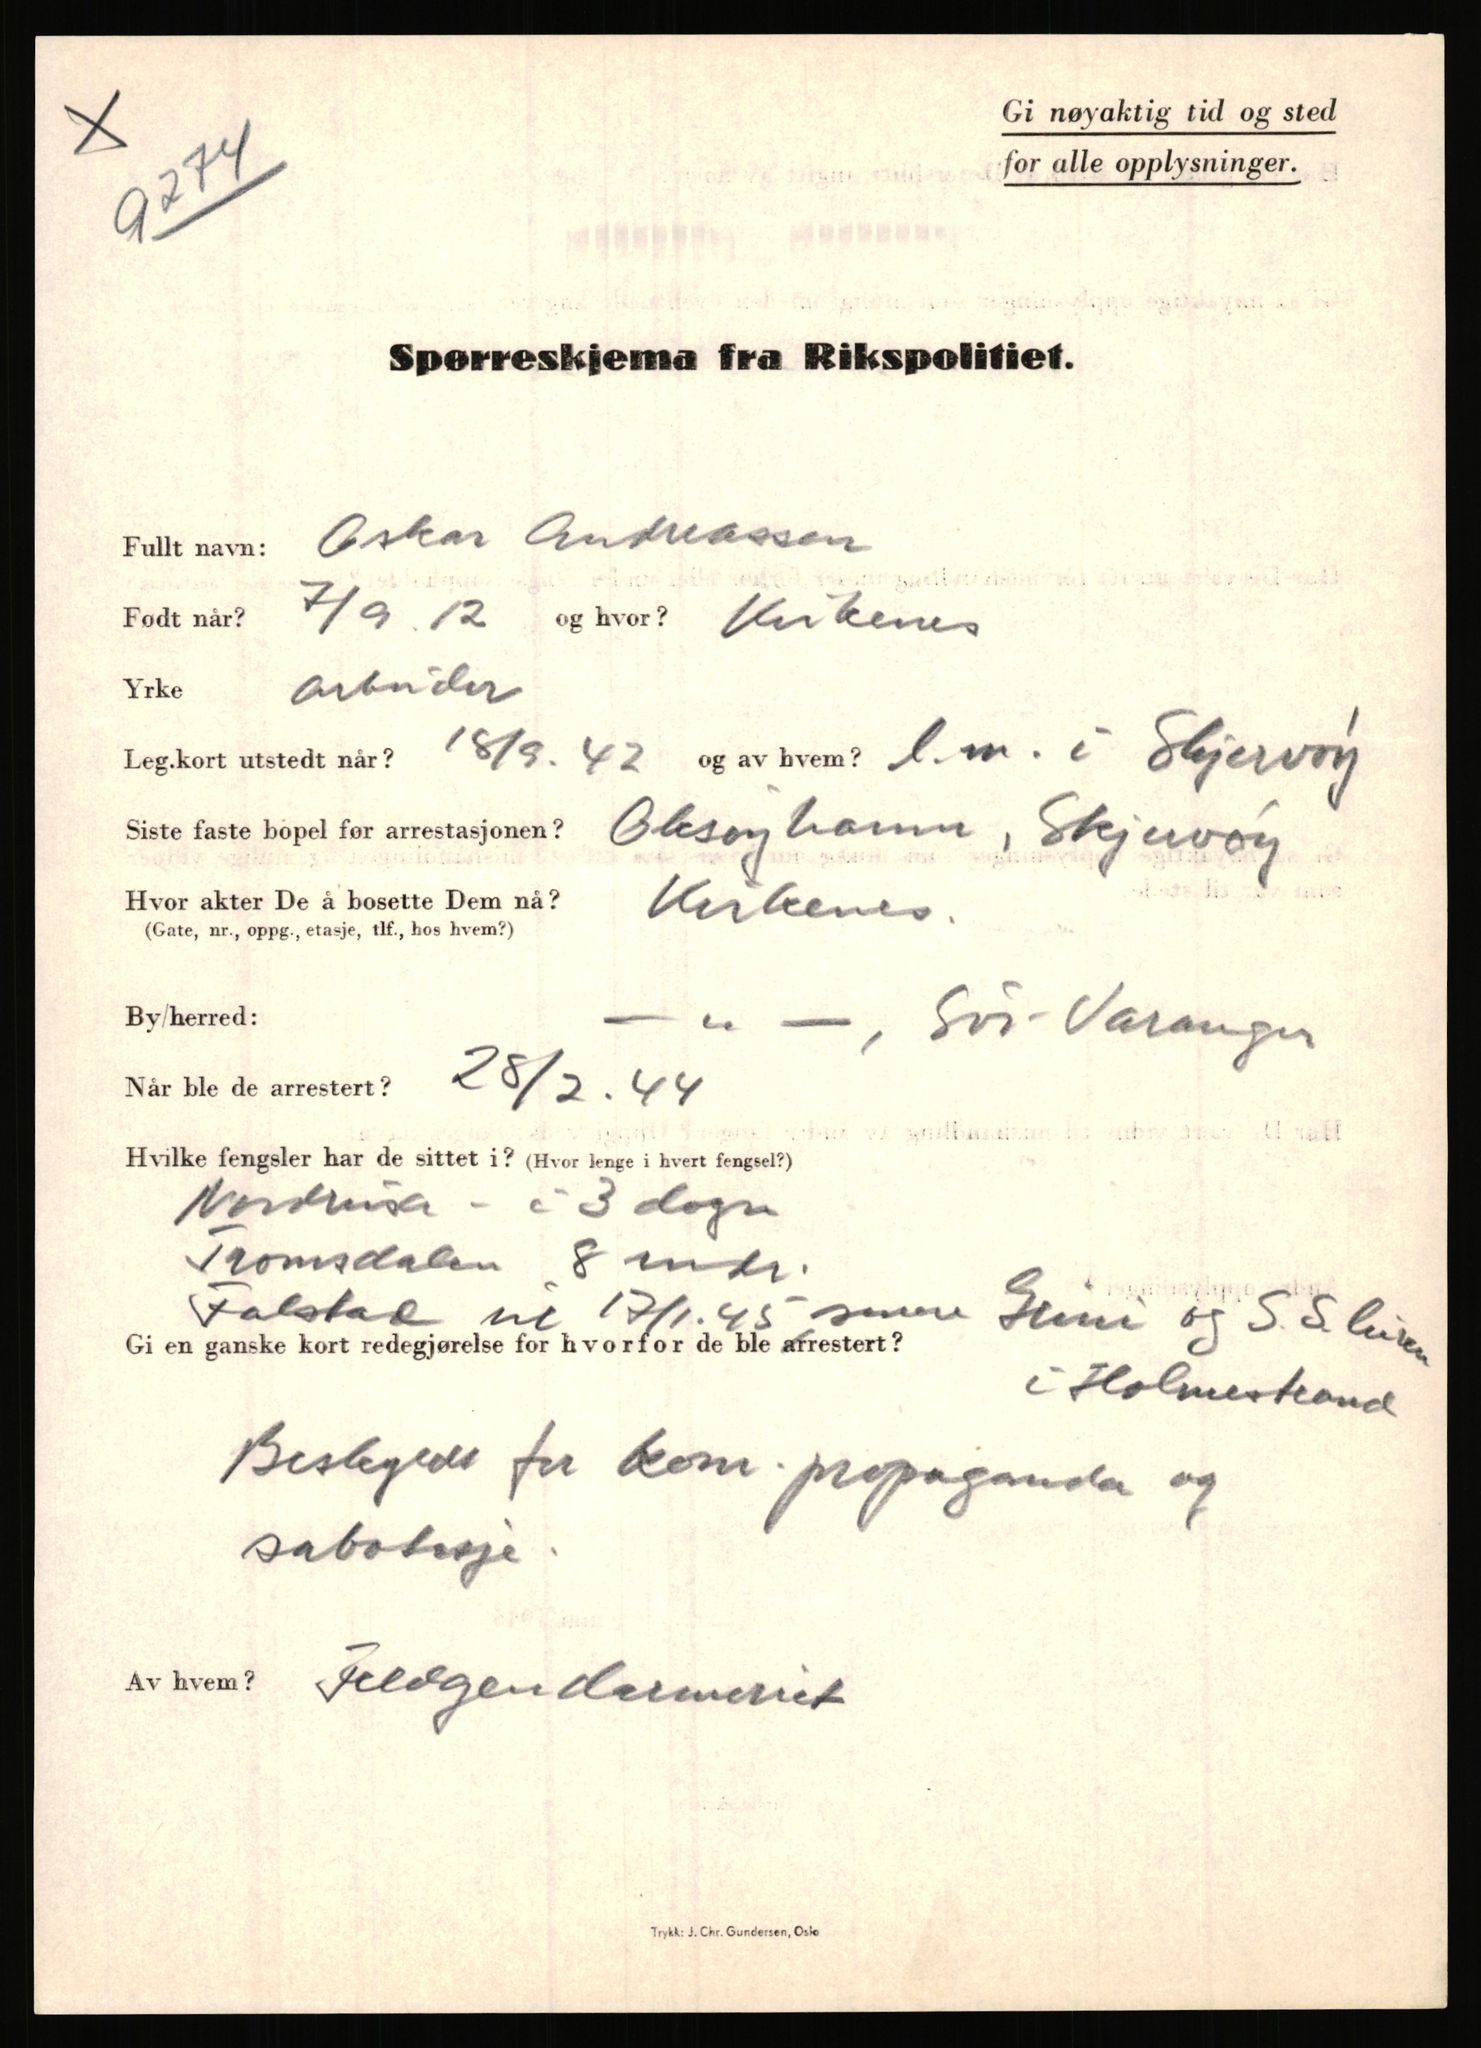 X
9274
Gi nøyaktig tid og sted
for alle opplysninger.
Spørreskjema fra Rikspolitiet.
Fullt navn: Oskar Andreassen
Født når? 7/9.12 og hvor? Kirkenes
Yrke arbeider
Leg.kort utstedt når? 18/9.42 og av hvem? l.m. i Skjervöy
Siste faste bopel før arrestasjonen? Oksöyhamn, Skjervöy
Hvor akter De å bosette Dem nå? Kirkenes.
(Gate, nr., oppg., etasje, tlf., hos hvem?)
By/herred: — " —, Sör-Varanger
Når ble de arrestert? 28/2.44
Hvilke fengsler har de sittet i? (Hvor lenge i hvert fengsel?)
Nordreisa - i 3 dogn
Tromsdalen 8 mdr.
Falstad til 17/1.45 senere Grini og S.S. leiren
i Holmestrand
Gi en ganske kort redegjørelse for hvorfor de ble arrestert?
Beskyldt for kom. propaganda og
sabotasje.
Av hvem? Feldgendarmeriet
Trykk: J. Chr. Gundersen, Oslo